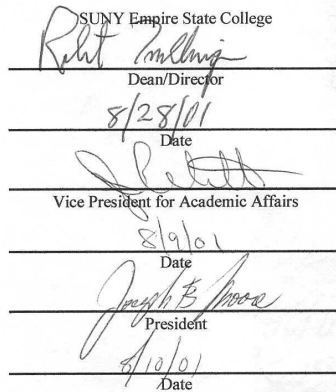 SUNY Empire State College
Robert
Dean/Director
8/28/01
Date
Vice President for Academic Affairs
8/9/01
Date
Joseph B Moore
President
8/10/01
Date